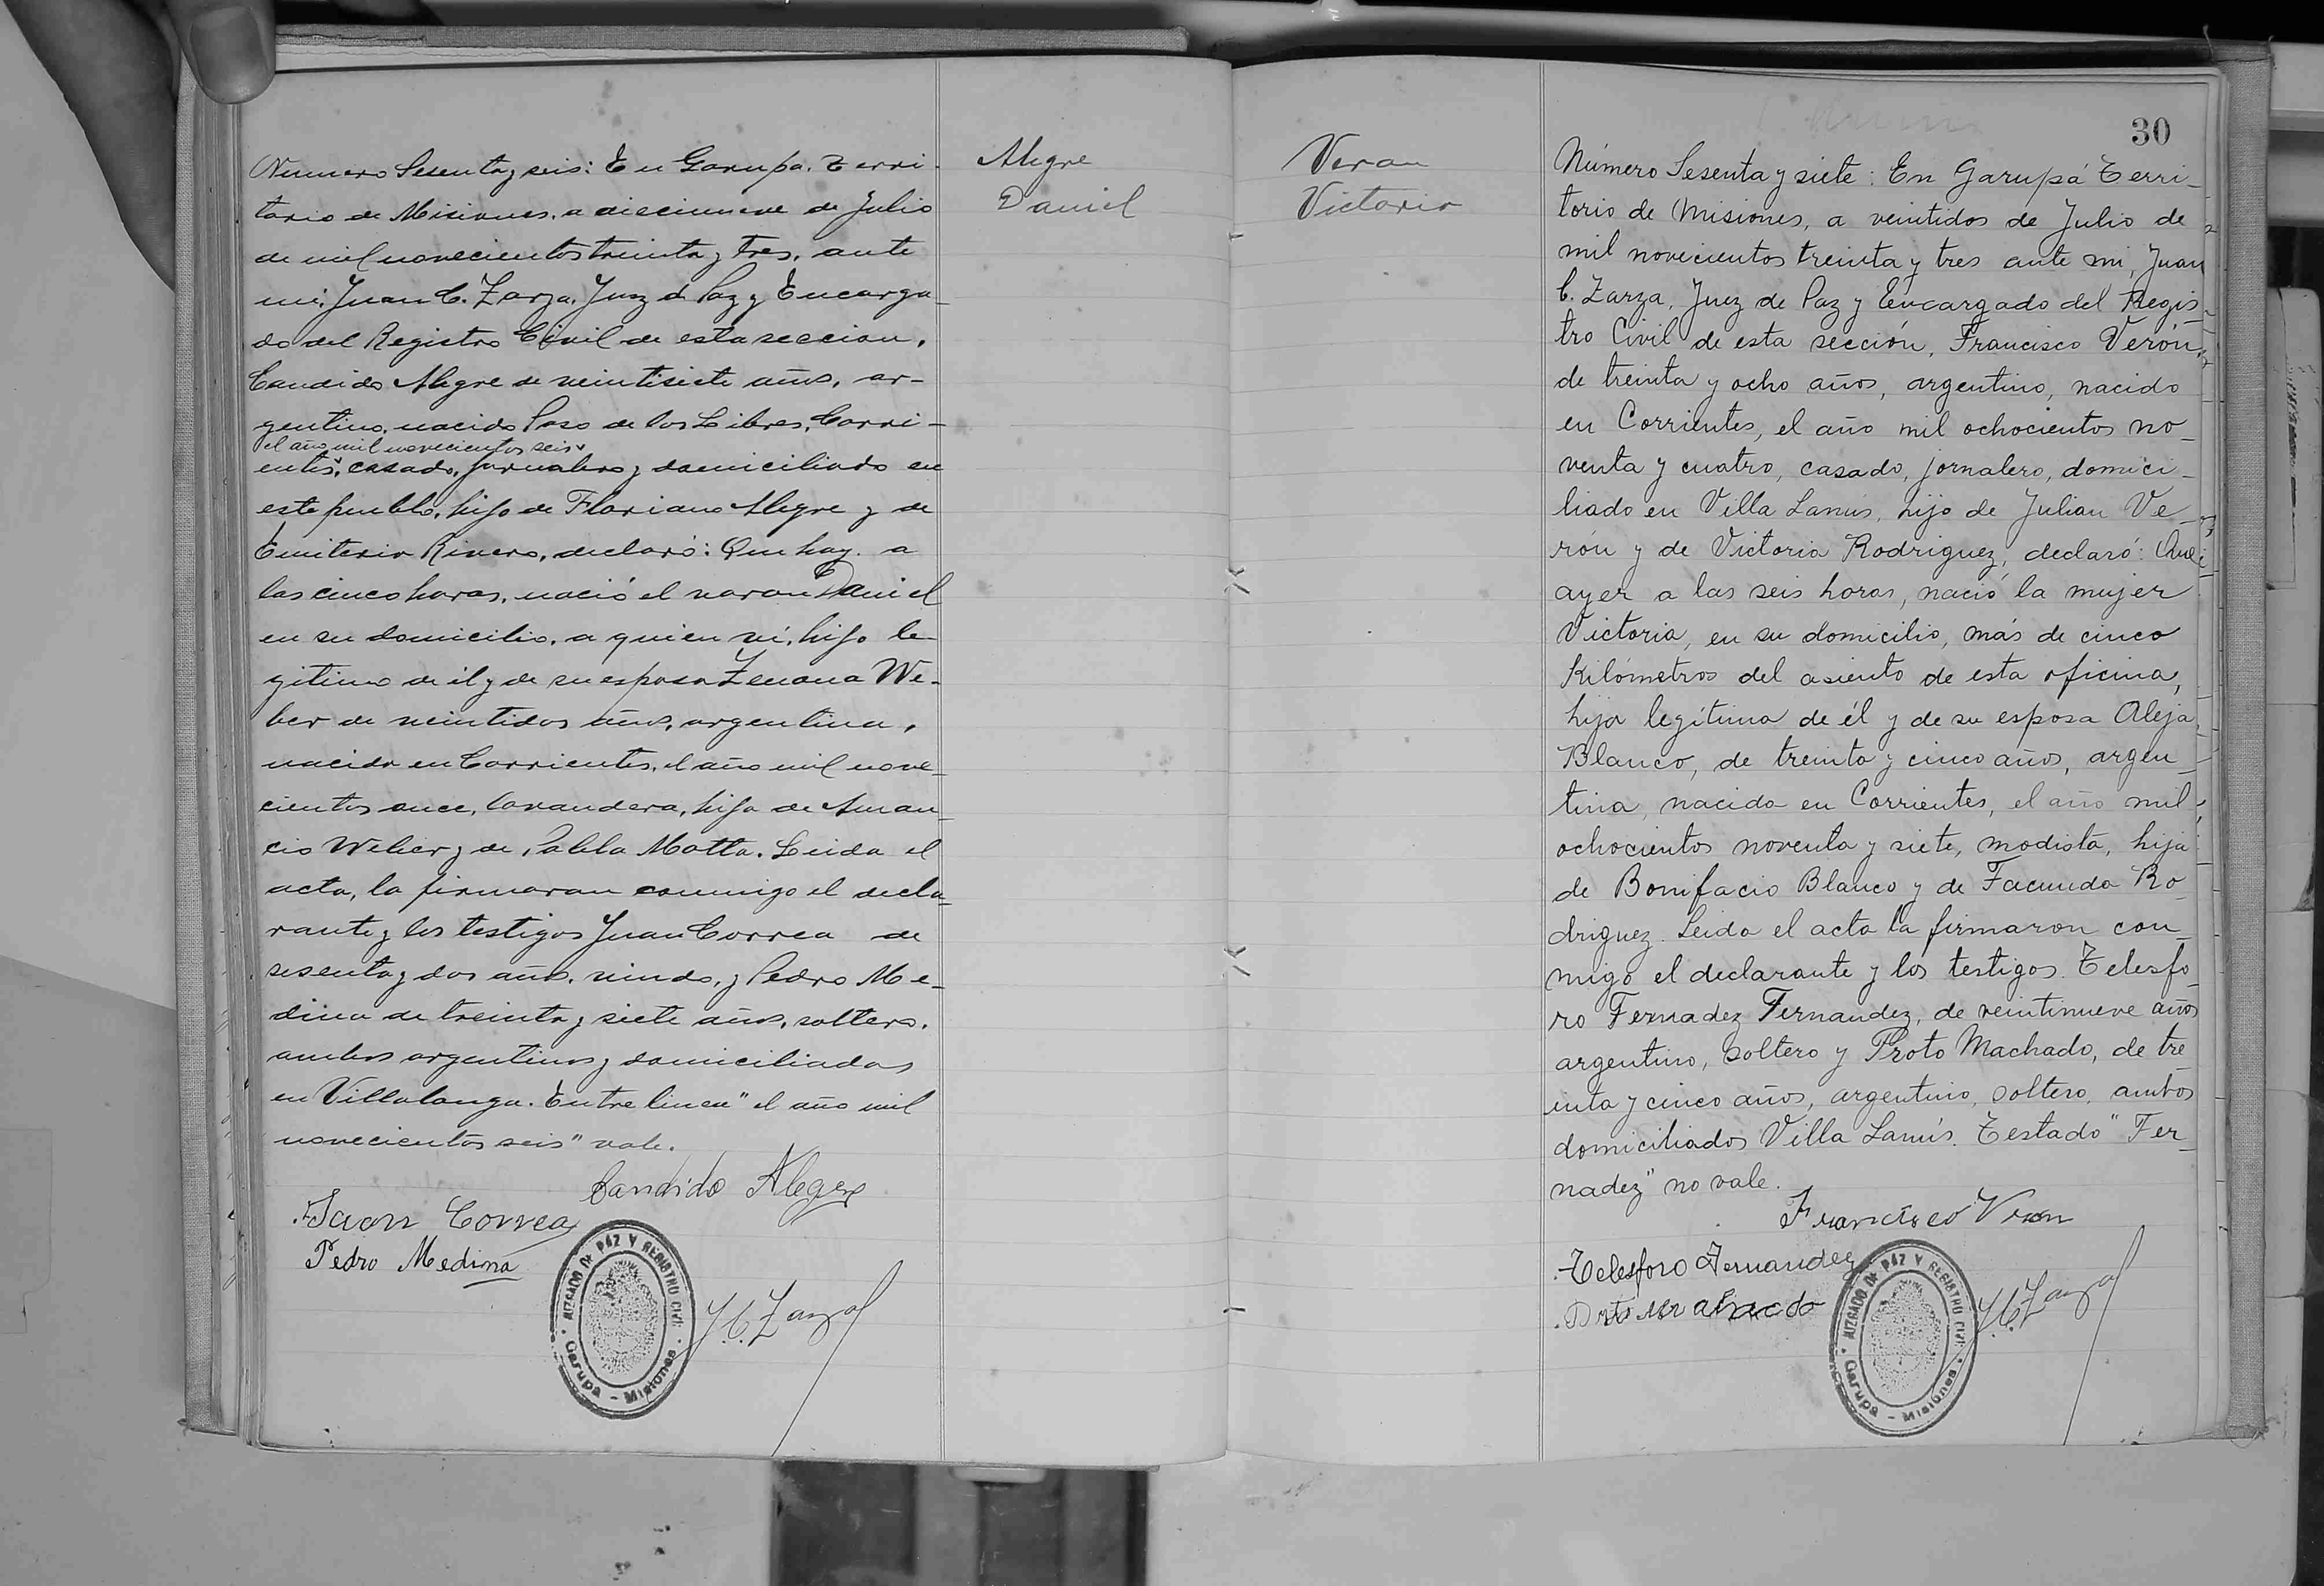 Numero Sesenta y seis: En Garupa. Terri-
torio de Misiones, a diecinueve de Julio
de mil novecientos treinta y tres, ante
mi, Juan C. Zarza, Juez de Paz y Encarga-
do del Registro Civil de esta seccion,
Candido Alegre de veintisiete años, ar-
gentino, nacido Paso de los Libres, Corri-
el año mil novecientos seis
entes, casado, jornalero y domiciliado en
este pueblo, hijo de Floriano Alegre y de
Emiteria Rivero, declaró: Que hoy a
las cinco horas, nació el varon Daniel
en su domicilio, a quien ví, hijo le
gitimo de él y de su esposa Zenona We-
ber de veintidos años, argentina,
nacida en Corrientes, el año mil nove-
cientos once, lavandera, hija de Aman-
cio Weber y de Pabla Motta. Leida el
acta, la firmaron conmigo el decla-
rante y los testigos Juan Correa de
sesenta y dos años, viudo, y Pedro Me-
dina de treinta y siete años, soltero,
ambos argentinos y domiciliados
en Villalonga. Entre linea "el año mil
novecientos seis" vale.
Candido Alegre
Juan Correa
Pedro Medina
JUZGADO DE PAZ Y REGISTRO CIVIL
Garupá - Misiones
J. C. Zarza
Alegre
Daniel
Veron
Victoria
30
Número Sesenta y siete: En Garupá Terri-
torio de Misiones, a veintidos de Julio de
mil novecientos treinta y tres ante mi, Juan
C. Zarza, Juez de Paz y Encargado del Regis-
tro Civil de esta sección, Francisco Verón,
de treinta y ocho años, argentino, nacido
en Corrientes, el año mil ochocientos no-
venta y cuatro, casado, jornalero, domici-
liado en Villa Lanús, hijo de Julian Ve-
rón y de Victoria Rodriguez, declaró: Que
ayer a las seis horas, nació la mujer
Victoria, en su domicilio, más de cinco
Kilómetros del asiento de esta oficina,
hija legítima de él y de su esposa Aleja
Blanco, de treinta y cinco años, argen-
tina, nacida en Corrientes, el año mil
ochocientos noventa y siete, modista, hija
de Bonifacio Blanco y de Facunda Ro-
driguez. Leida el acta la firmaron con-
migo el declarante y los testigos Telesfo-
ro Fernadez Fernandez, de veintinueve años
argentino, soltero y Proto Machado, de tre
inta y cinco años, argentino, soltero, ambos
domiciliados Villa Lanús. Testado "Fer-
nadez" no vale.
Francisco Veron
Telesforo Fernandez
Proto Machado
JUZGADO DE PAZ Y REGISTRO CIVIL
Garupá - Misiones
J. C. Zarza